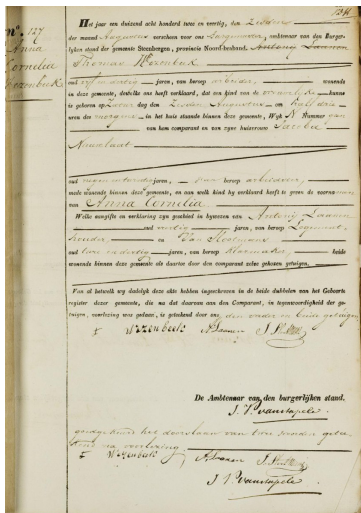 N.º 127
Anna
Cornelia
Wezenbeek
Het jaar een duizend acht honderd twee en veertig, den Zesden
der maand Augustus verscheen voor ons Burgemeester, ambtenaar van den Burger-
lijken stand der gemeente Steenbergen, provincie Noord-braband,
Thomas Wezenbeek
oud vijf dertig jaren, van beroep arbeider, wonende
in deze gemeente, dewelke ons heeft verklaard, dat een kind van de vrouwelijke kunne
is geboren op dag den Zesden Augustus om half drie
uren des morgens in het huis staande binnen deze gemeente, Wijk N Nummer
van hem comparant en van zijne huisvrouw Jacoba
Nieuwlaat
oud negenentwintig jaren, van beroep arbeidster,
mede wonende binnen deze gemeente, en aan welk kind hij verklaard heeft te geven de voornamen
van Anna Cornelia
Welke aangifte en verklaring zyn geschied in bijwezen van Antonij Laanen
oud veertig jaren, van beroep
en Jan
oud twee en dertig jaren, van beroep Kleermaker, beide
wonende binnen deze gemeente als daartoe door den comparant zelve gekozen getuigen.
Van al hetwelk wij dadelijk deze akte hebben ingeschreven in de beide dubbelen van het Geboorte
register dezer gemeente, die na dat daarvan aan den Comparant, in tegenwoordigheid der ge-
tuigen, voorlezing was gedaan, is geteekend door ons den vader en beide getuigen
T Wezenbeek A Laanen
De Ambtenaar van den burgerlijken stand.
J. V. van Stapele
goedgekeurd het doorslaan van twee woorden getee-
kend na voorlezing
T Wezenbeek A Laanen
J V van Stapele